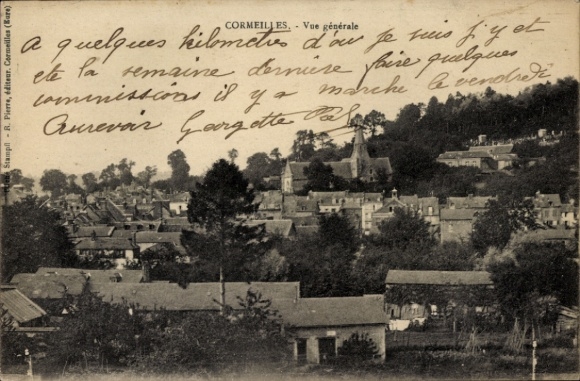 CORMEILLES. - Vue générale
A quelques kilometres d'ou je suis j'y et
ete la semaine derniere faire quelques
commissions il y a marche le vendredi
Aurevoir Georgette
R. Pierre, éditeur, Cormeilles (Eure)